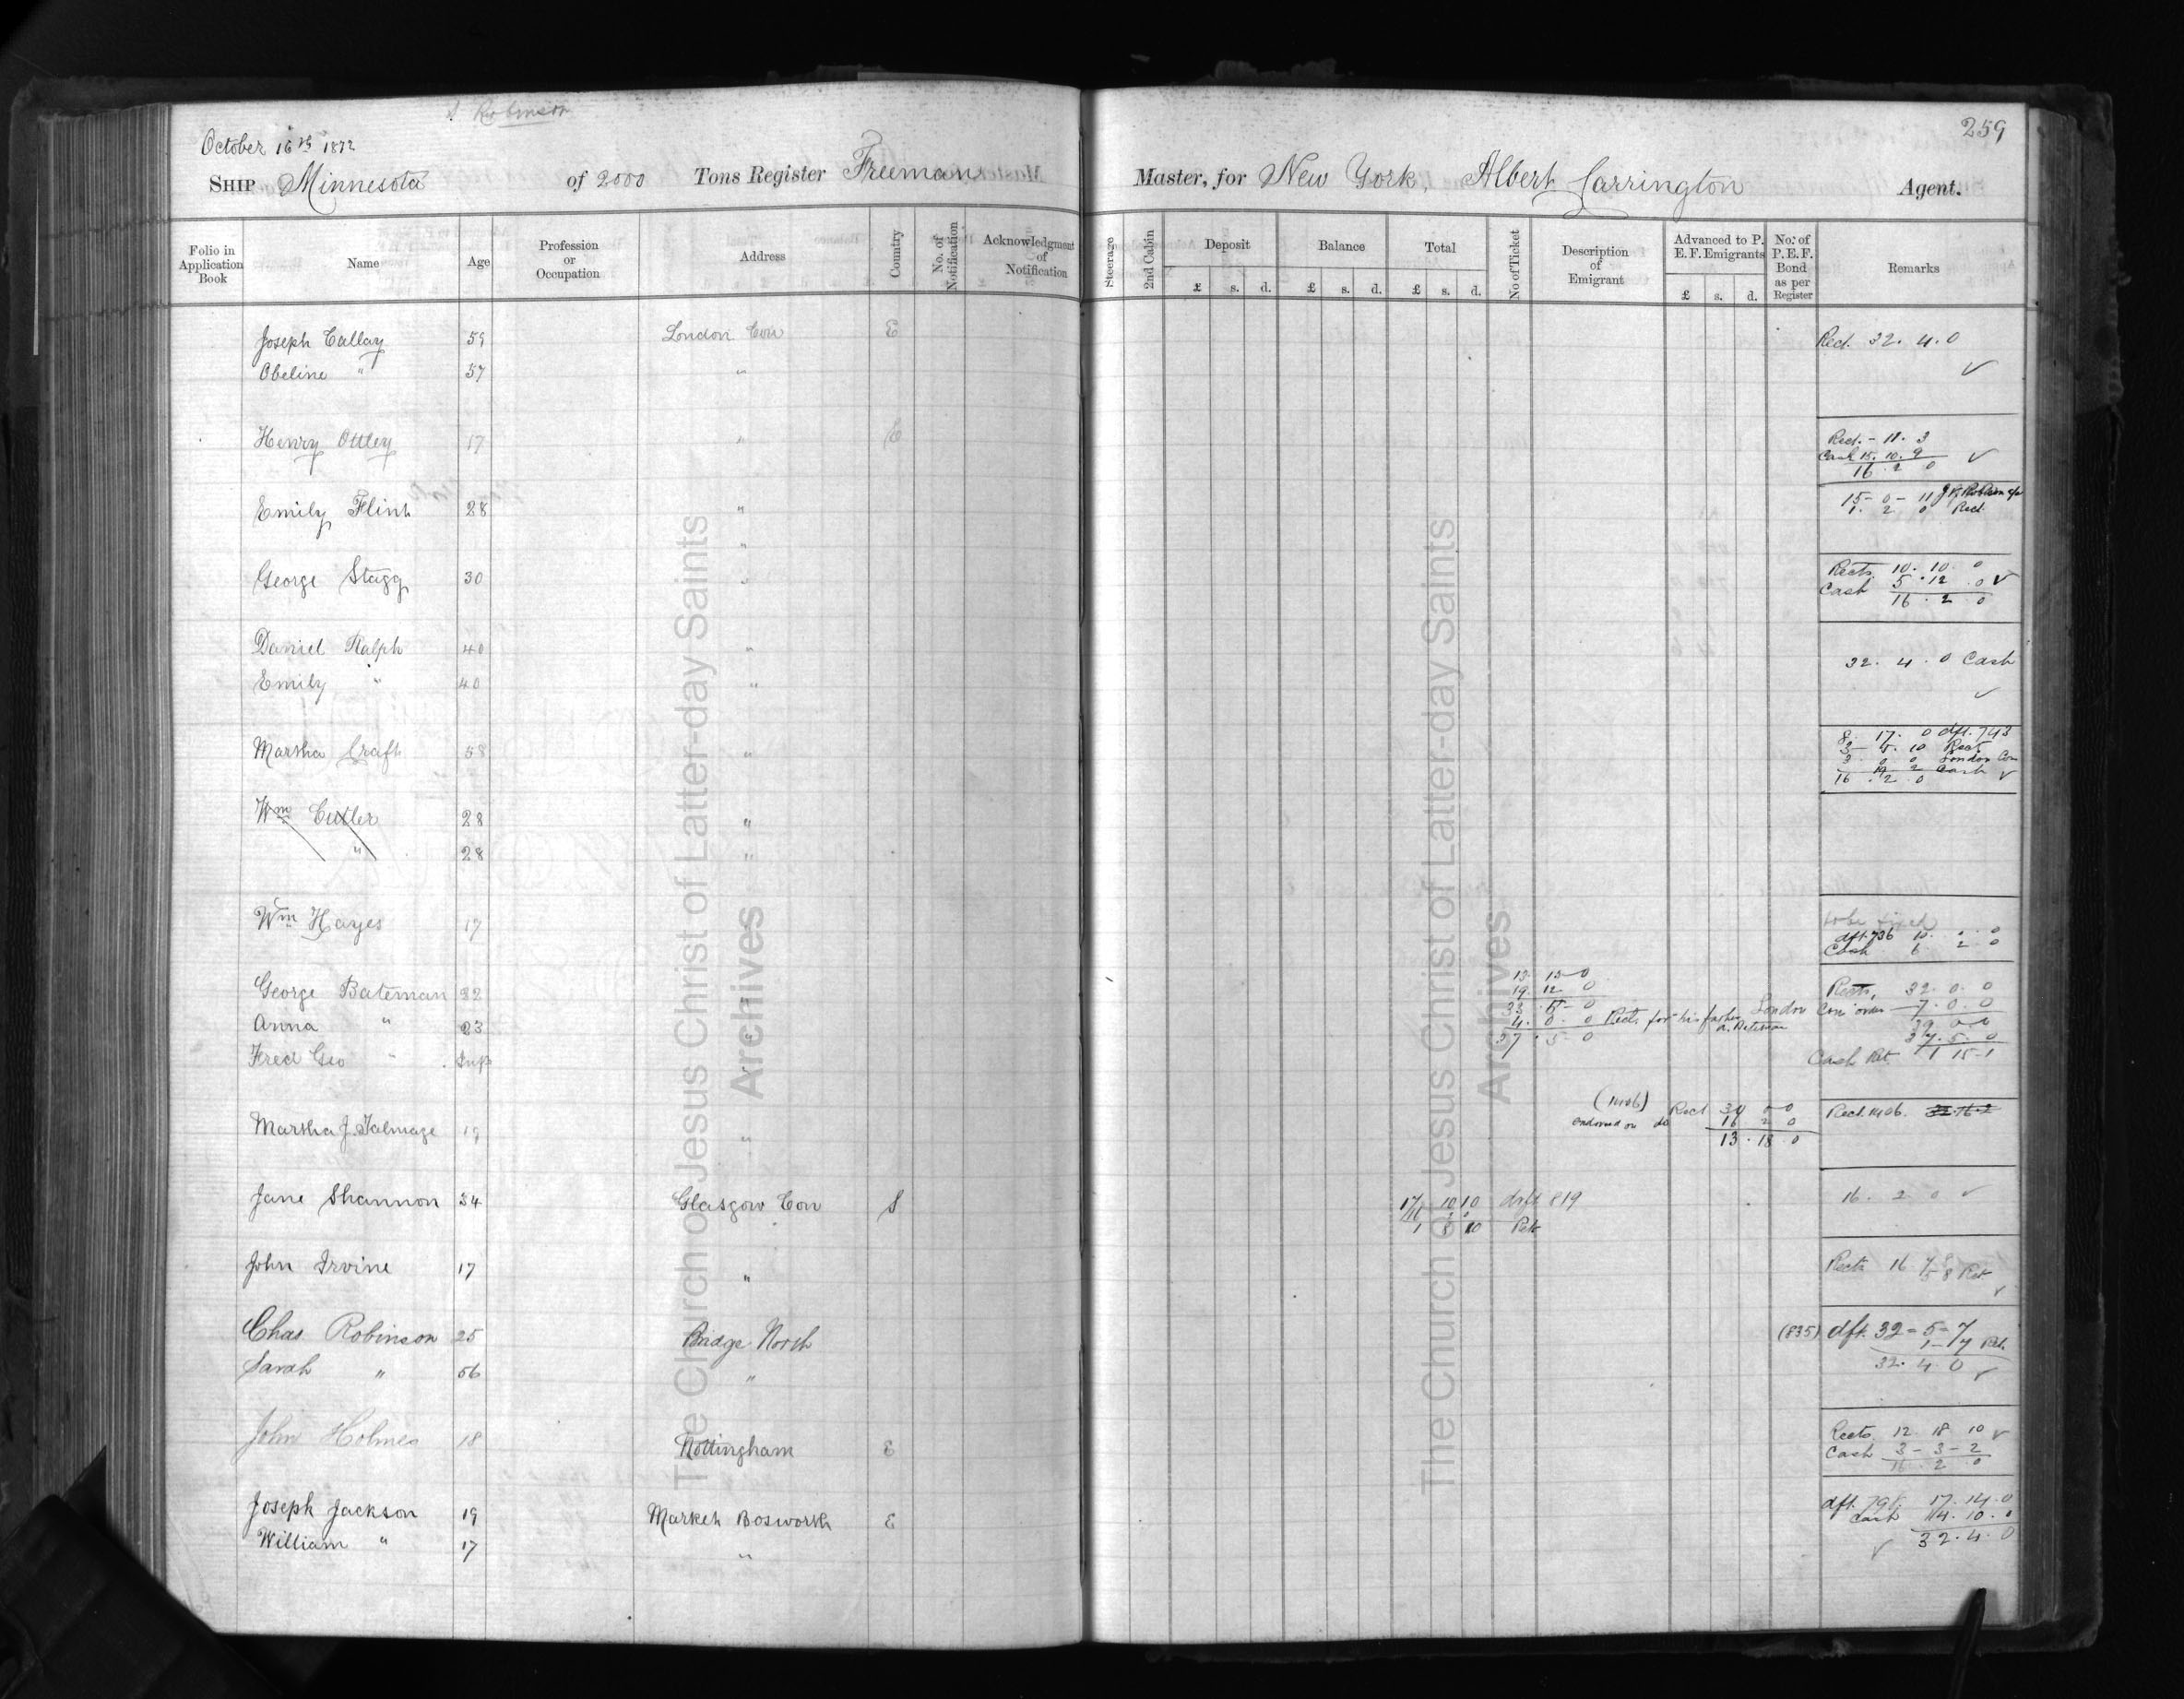 Robinson
October 16th 1872
259
SHIP Minnesota of 2000 Tons Register Freeman Master, for New York, Albert Carrington Agent.
Folio in Application Book Name Age Profession or Occupation Address Country No. of Notification Acknowledgment of Notification Steerage 2nd Cabin Deposit Balance Total No of Ticket Description of Emigrant Advanced to P. E. F. Emigrants No. of P. E. F. Bond as per Register Remarks
£ s. d. £ s. d. £ s. d. £ s. d.
Joseph Callay 59 London Con E Rect. 32. 4. 0
Obeline " 57 " ✓
Henry Ottley 17 " E Rect. - 11. 3
Cash 15. 10. 9 ✓
16 . 2 0
Emily Flint 28 " 15 - 0 - 11
1. 2 0 Rect.
"
George Stagg 30 " Rects 10. 10. 0
Cash 5 . 12 . 0 ✓
16 . 2 . 0
Daniel Ralph 40 " 32. 4. 0 Cash
Emily " 40 " ✓
Martha Craft 58 " 8. 17. 0 dft. 743
3 - 5. 10 Rect.
3. 0 0 London Con
19 2 Cash
16 . 2 . 0 ✓
Wm Cutler 28 "
" 28 "
Wm Hayes 19
dft. 736 10. 0. 0
Cash 6 2 0
13. 13 - 0
19. 12 0
George Bateman 32 33 . 5 - 0 Rects, 32. 0. 0
Anna " 23 4. 0. 0 Rects for his father London Con over 7. 0. 0
37 . 5 0 39 0 0
Fred Geo " Inf 37. 5. 0
Cash Ret 1 15 - 1
Martha J. Talmage 19 " (1406) Rect 30 0 0 Rect. 1406. 32-16-2
endorsed on do 16 2 0
13. 18 0
Jane Shannon 34 Glasgow Con S 17 10 10 draft 819 16. 2 0 ✓
16 2 0
1 8 10 Ret
John Irvine 17 " Rects 16 7 8
5 8 Ret ✓
Chas Robinson 25 Bridge North (835) dft. 32 = 5 - 7
1 - 7 Ret.
Sarah " 56 " 32. 4. 0 ✓
John Holmes 18 Nottingham E Rects. 12. 18 10 ✓
Cash 3 - 3 - 2
16 . 2 . 0
Joseph Jackson 19 Market Bosworth E dft. 798 17. 14. 0
William " 17 " Cash 14. 10. 0
✓ 32. 4. 0
The Church of Jesus Christ of Latter-day Saints
Archives
The Church of Jesus Christ of Latter-day Saints
Archives